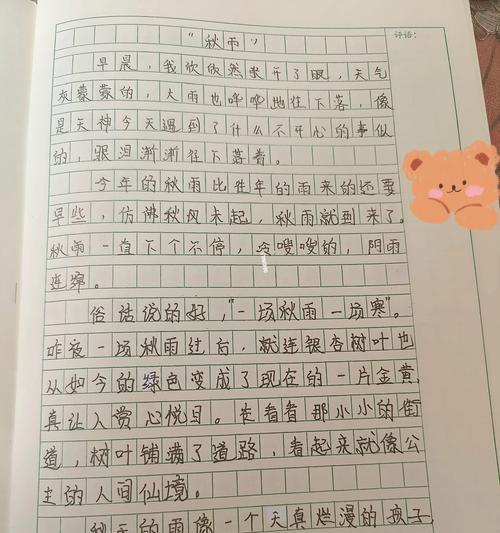 评语:
"秋雨"
早晨，我欣欣然张开了眼，天气
灰蒙蒙的，大雨也哗哗地往下落，像
是天神今天遇到了什么不开心的事似
的，眼泪渐渐往下落着。
今年的秋雨比往年的雨来的还要
早些，仿佛秋风未起，秋雨就到来了。
秋雨一直下个不停，冷嗖嗖的，阴雨
连绵。
俗话说的好，"一场秋雨一场寒"。
昨夜一场秋雨过后，就连银杏树叶也
从如今的绿色变成了现在的一片金黄，
真让人赏心悦目。在看着那小小的街
道，树叶铺满了道路，看起来就像公
主的人间仙境。
秋天的雨像一个天真烂漫的孩子